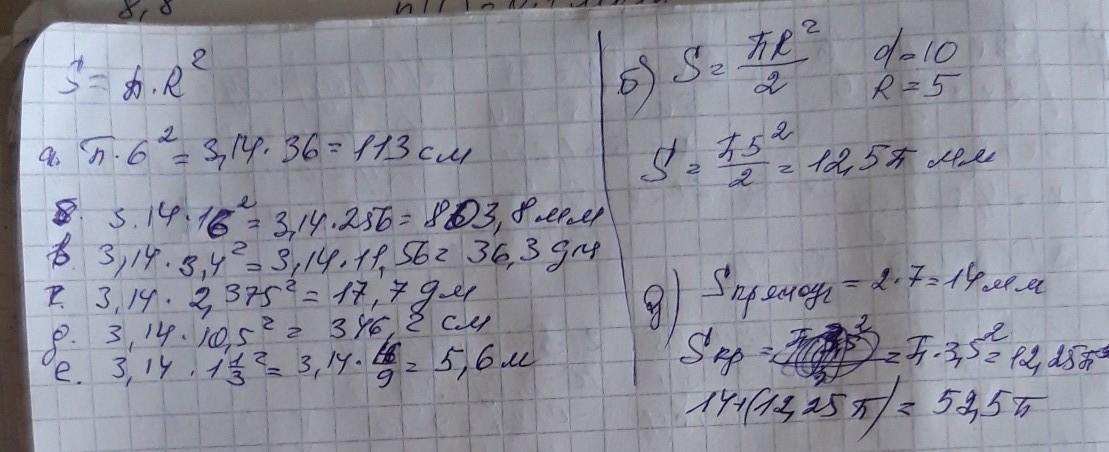 8,8
S = π·R²
а. π·6² = 3,14·36 = 113 см
б. 3.14·16² = 3,14·256 = 803,8 мм
в. 3,14·3,4² = 3,14·11,56 = 36,3 дм
г. 3,14·2,375² = 17,7 дм
д. 3,14·10,5² = 346,2 см
е. 3,14·1 1/3² = 3,14·16/9 = 5,6 м
б) S = πR²/2 d=10
R=5
S = π5²/2 = 12,5π мм
д) Sпрямоуг = 2·7 = 14 мм
Sкр = = π·3,5² = 12,25π
14+(12,25π) = 52,5π